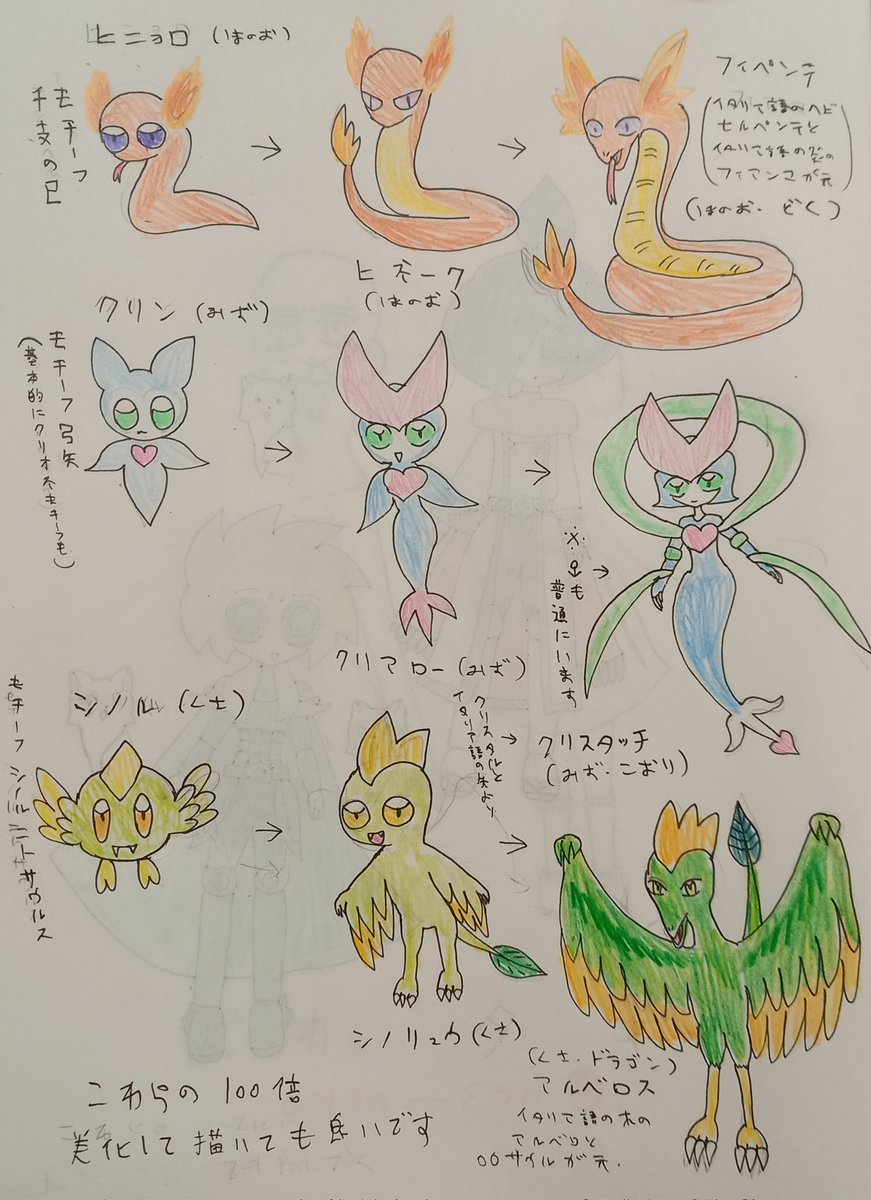 ヒニョロ (ほのお)
モチーフ
干支の巳
フィペンテ
イタリア語のヘビ
セルペンテと
イタリア語の炎の
フィアンマが元
(ほのお・どく)
ヒネーク
(ほのお)
クリン (みず)
モチーフ 弓矢
(基本的にクリオネモチーフも)
※ ⚓も
普通にいます
クリアロー (みず)
クリスタルと
イタリア語の矢より
クリスタッチ
(みず・こおり)
シノル (くさ)
モチーフ シノルニトサウルス
シノリュカ (くさ)
(くさ・ドラゴン)
アルベロス
イタリア語の木の
アルベロと
〇〇サイルが元.
これらの 100倍
美化して描いても良いです